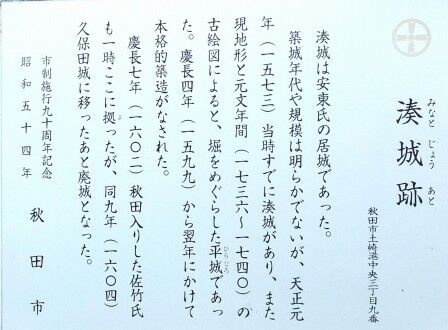 湊城跡
みなと じょう あと
秋田市土崎港中央三丁目九番
湊城は安東氏の居城であった。
築城年代や規模は明らかでないが、天正元
年（一五七三）当時すでに湊城があり、また
現地形と元文年間（一七三六～一七四〇）の
古絵図によると、堀をめぐらした平城であっ
ひらじろ
た。慶長四年（一五九九）から翌年にかけて
本格的築造がなされた。
慶長七年（一六〇二）秋田入りした佐竹氏
も一時ここに拠ったが、同九年（一六〇四）
よ
久保田城に移ったあと廃城となった。
市制施行九十周年記念
昭和五十四年
秋田市